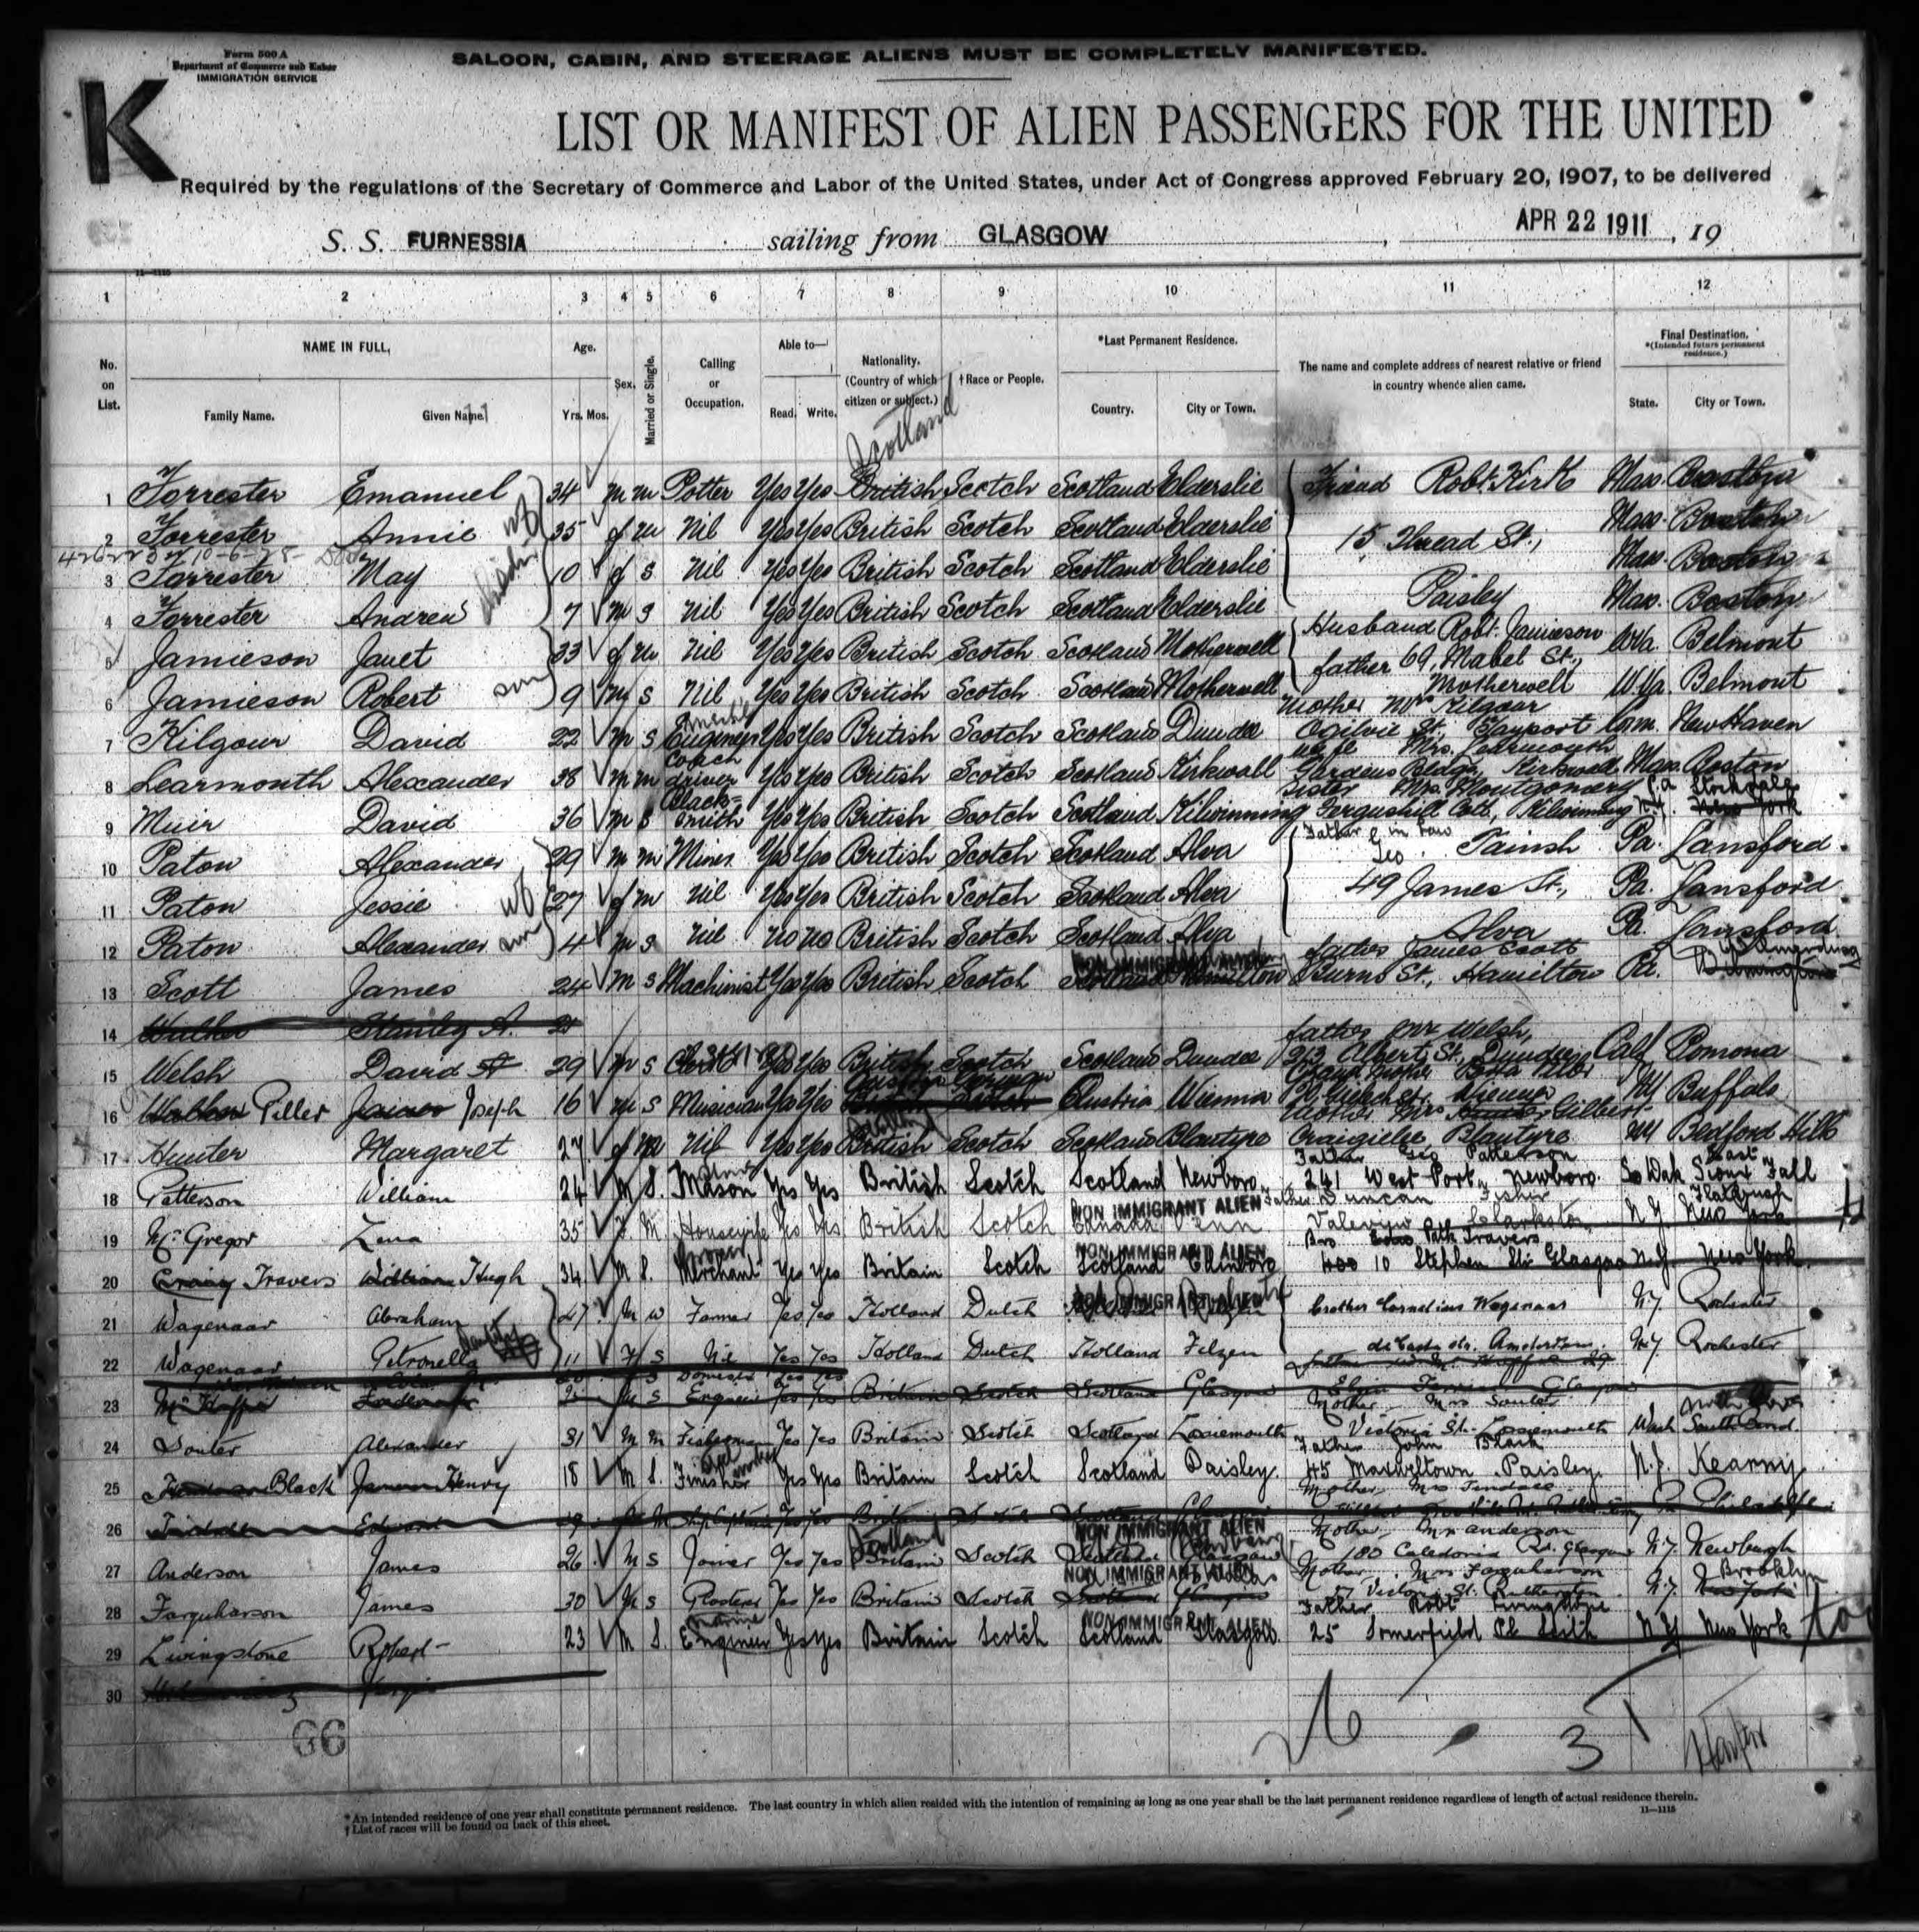 Form 500 A
Department of Commerce and Labor
IMMIGRATION SERVICE
SALOON, CABIN, AND STEERAGE ALIENS MUST BE COMPLETELY MANIFESTED.
K
LIST OR MANIFEST OF ALIEN PASSENGERS FOR THE UNITED
Required by the regulations of the Secretary of Commerce and Labor of the United States, under Act of Congress approved February 20, 1907, to be delivered
S. S. FURNESSIA sailing from GLASGOW, APR 22 1911, 19
11—1115
1 2 3 4 5 6 7 8 9 10 11 12
No. on List. NAME IN FULL, Family Name. Given Name. Age. Yrs. Mos. Sex. Married or Single. Calling or Occupation. Able to— Read. Write. Nationality. (Country of which citizen or subject.) †Race or People. *Last Permanent Residence. Country. City or Town. The name and complete address of nearest relative or friend in country whence alien came. Final Destination. *(Intended future permanent residence.) State. City or Town.
Scotland
1 Forrester Emanuel 34 m m Potter Yes Yes British Scotch Scotland Elderslie Friend Robt. Kirk Mass. Boston
2 Forrester Annie wf 35 f m Nil Yes Yes British Scotch Scotland Elderslie 15, Thread St., Mass. Boston
3 Forrester May 10 f s Nil Yes Yes British Scotch Scotland Elderslie Mass. Boston
4 Forrester Andrew 7 m s Nil Yes Yes British Scotch Scotland Elderslie Paisley Mass. Boston
5 Jamieson Janet 33 f m Nil Yes Yes British Scotch Scotland Motherwell Husband Robt. Jamieson W Va. Belmont
6 Jamieson Robert son 9 m s Nil Yes Yes British Scotch Scotland Motherwell father 69, Mabel St., Motherwell W Va. Belmont
7 Kilgour David 22 m s Engineer Yes Yes British Scotch Scotland Dundee Mother Mrs Kilgour Ogilvie St., Tayport Conn. New Haven
8 Learmonth Alexander 38 m m Coach driver Yes Yes British Scotch Scotland Kirkwall wife Mrs. Learmonth Gardens Bldgs, Kirkwall Mass. Boston
9 Muir David 36 m s Black-smith Yes Yes British Scotch Scotland Kilwinning Sister Mrs. Montgomery Fergushill Cott., Kilwinning Pa Stockdale N.Y. New York
10 Paton Alexander 29 m m Miner Yes Yes British Scotch Scotland Alva Father in law Geo. Tainsh Pa. Lansford
11 Paton Jessie wf 27 f m Nil Yes Yes British Scotch Scotland Alva 49 James St., Pa. Lansford
12 Paton Alexander son 4 m s Nil No No British Scotch Scotland Alva Alva Pa. Lansford
13 Scott James 24 m s Machinist Yes Yes British Scotch NON IMMIGRANT ALIEN Scotland Hamilton father James Scott Burns St., Hamilton Pa.
14 Walker Stanley A. 21
15 Welsh David A 29 m s Clerk Yes Yes British Scotch Scotland Dundee father Mr Welsh, 213 Albert St., Dundee Calf. Pomona
16 Piller James Joseph 16 m s Musician Yes Yes British Scotch Austria Wienna NY Buffalo
17 Hunter Margaret 27 f m Nil Yes Yes British Scotch Scotland Blantyre Mother Mrs Gilbert Craigielee, Blantyre NY Bedford Hills
18 Patterson William 24 M S. Stone Mason Yes Yes British Scotch Scotland Newboro. Father Geo Patterson 241 West Port, Newboro. So Dak Sioux Fall
19 McGregor Zena 35 F. M. Housewife Yes Yes British Scotch NON IMMIGRANT ALIEN Canada Father Duncan Fisher N.Y. Flatbush New York
20 Craig Travers William Hugh 34 M S. Merchant Yes Yes Britain Scotch NON IMMIGRANT ALIEN Scotland Edinboro Bro Travers 10 Stephen Str Glasgow N.Y. New York.
21 Wagenaar Abraham 47 M W Farmer Yes Yes Holland Dutch NON IMMIGRANT ALIEN brother Cornelius Wagenaar N.Y. Rochester
22 Wagenaar Petronella 11 F S Nil Yes Yes Holland Dutch Holland Amsterdam N.Y. Rochester
23 M S Engineer Yes Yes Britain Scotch Scotland Glasgow
24 Souter Alexander 31 M M Fisherman Yes Yes Britain Scotch Scotland Lossiemouth Mother Mrs Souter Victoria St. Lossiemouth Wash South Bend.
25 Black Henry 18 M S. Finisher Yes Yes Britain Scotch Scotland Paisley. Father John Black 45 Maxweltown Paisley. N.J. Kearny
26 Tindall Edward Mother Mrs Tindall Pa Philadelphia
27 Anderson James 26 M S Joiner Yes Yes Scotland Britain Scotch NON IMMIGRANT ALIEN Scotland Glasgow Mother Mrs Anderson 180 Caledonia Rd. Glasgow N.Y. Newburgh
28 Farquharson James 30 M S Plasterer Yes Yes Britain Scotch NON IMMIGRANT ALIEN Scotland Glasgow Mother Mrs Farquharson N.Y. Brooklyn New York
29 Livingstone Robert 23 M S. Marine Engineer Yes Yes Britain Scotch NON IMMIGRANT ALIEN Scotland Glasgow. Father Robt Livingstone 25 Somerfield Pl Leith N.Y New York
30
66
26 3
*An intended residence of one year shall constitute permanent residence. The last country in which alien resided with the intention of remaining as long as one year shall be the last permanent residence regardless of length of actual residence therein.
†List of races will be found on back of this sheet.
11—1115